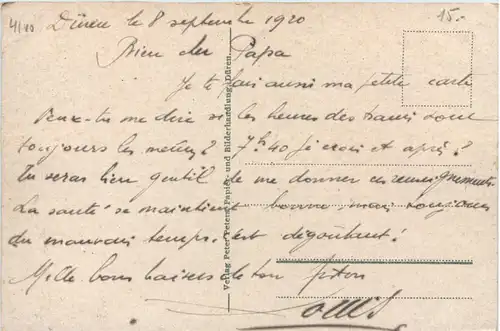 4/80
15.-
Düren le 8 septembre 1920
Bien cher Papa
Je te fais aussi ma petite carte
Peux-tu me dire si les heures des trains sont
toujours les mêmes? 7h40 je crois et après?
Tu seras bien gentil de me donner ces renseignements
La santé se maintient bonne, mais toujours
du mauvais temps. c'est dégoûtant!
Mille bons baisers de ton fiston
Louis
Verlag Peter Peters, Papier- und Bilderhandlung, Düren.